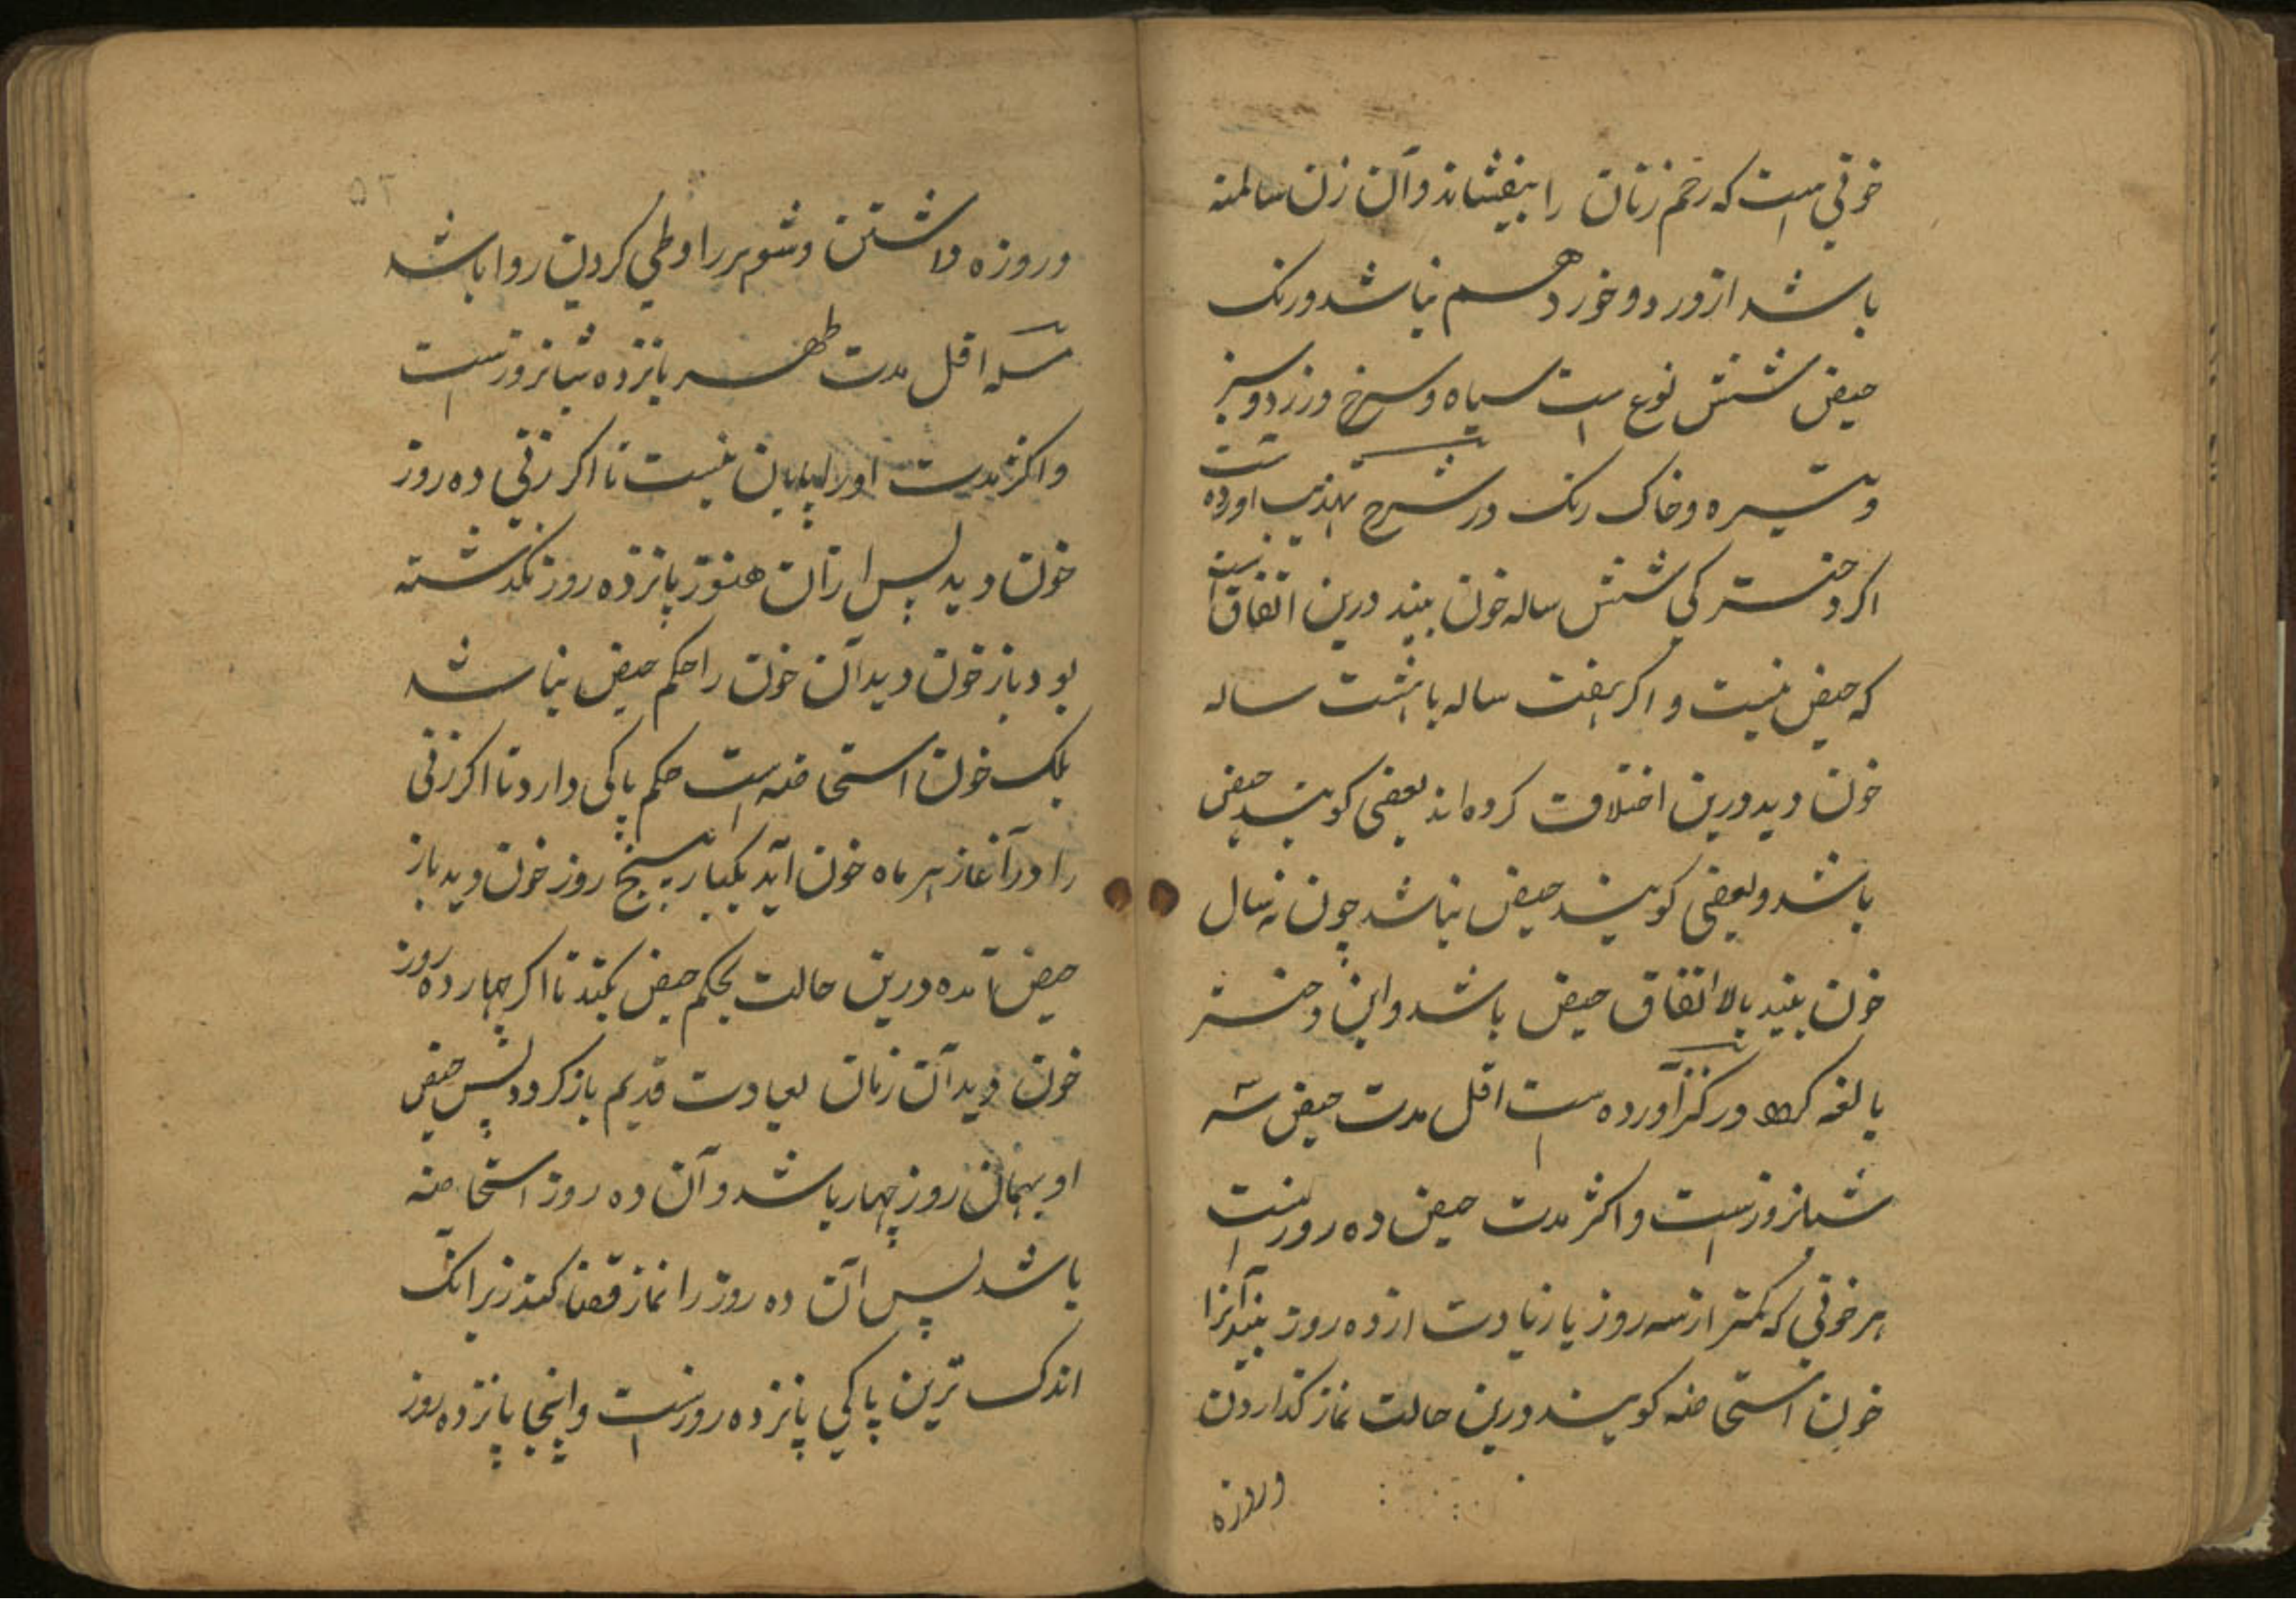 خونی است که رحم زنان را بیفشاند و آن زن سالمه
باشد از ورد و خورد هم نباشد و رنک
حیض شش نوع است سیاه و سرخ و زرد و سبز
و تیره و خاک رنک در شرح تهذیب اورده است
اکر دخترکی شش ساله خون بیند درین اتفاق است
که حیض نیست و اکر هفت ساله یا هشت ساله
خون دید درین اختلاف کرده اند بعضی کویند حیض
باشد و بعضی کویند حیض نباشد چون نه سال
خون بیند بالاتفاق حیض باشد و این دختر
بالغه کردد در کنز آورده است اقل مدت حیض سه
شبانروزست و اکثر مدت حیض ده روزست
هر خونی که کمتر از سه روز یا زیادت از ده روز بیند آنرا
خون استحاضه کویند درین حالت نماز کذاردن
وروزه
وروزه داشتن و شوهر را وطی کردن روا باشد
مسله اقل مدت طهر پانزده شبانروزست
و اکثر مدت اورا پایان نیست تا اکر زنی ده روز
خون دید پس ازان هنوز پانزده روز نکذشته
بود باز خون دید آن خون را حکم حیض نباشد
بلک خون استحاضه است حکم پاکی دارد تا اکر زنی
را در آغاز هر ماه خون آید یکبار پنج روز خون دید باز
حیض آمده درین حالت بحکم حیض کیرد تا اکر چهارده روز
خون دید آن زنان بعادت قدیم باز کردد پس حیض
او بهمان روز چهار باشد و آن ده روز استحاضه
باشد پس آن ده روز را نماز قضا کند زیرانک
اندک ترین پاکی پانزده روزست و اینجا پانزده روز